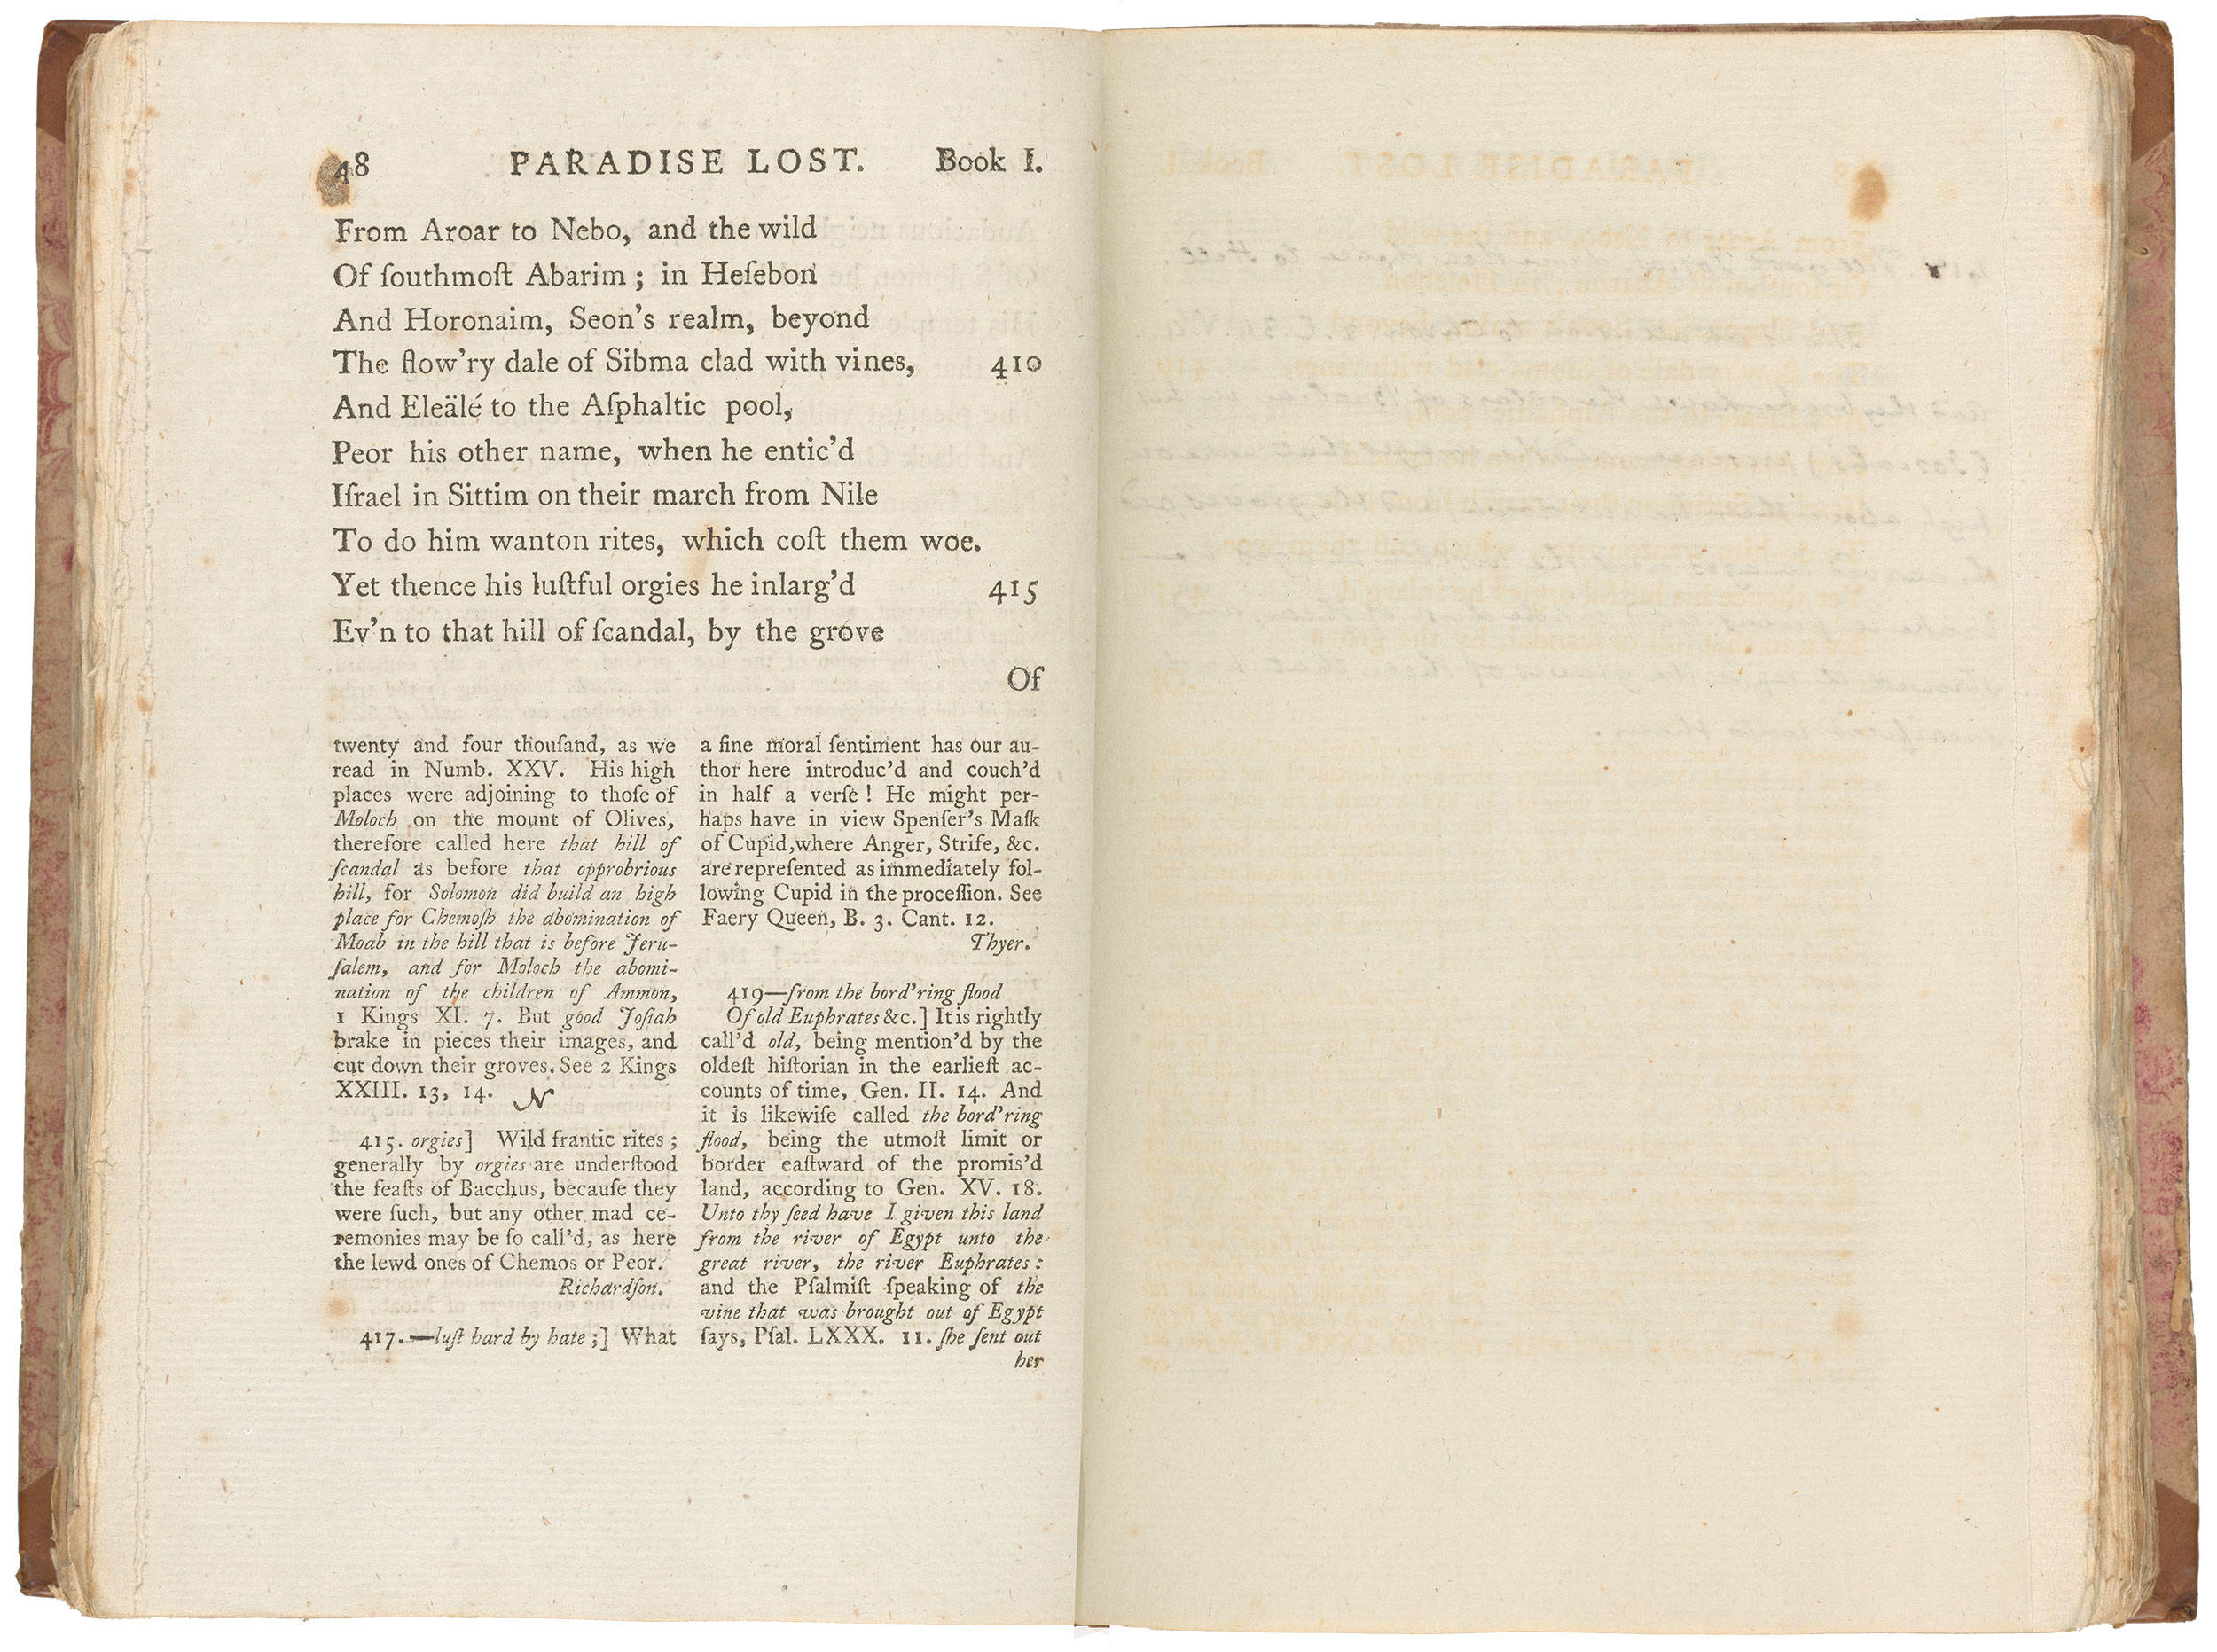 48 PARADISE LOST. Book I.
From Aroar to Nebo, and the wild
Of ſouthmoſt Abarim ; in Heſebon
And Horonaim, Seon's realm, beyond
The flow'ry dale of Sibma clad with vines, 410
And Eleälé to the Aſphaltic pool,
Peor his other name, when he entic'd
Iſrael in Sittim on their march from Nile
To do him wanton rites, which coſt them woe.
Yet thence his luſtful orgies he inlarg'd 415
Ev'n to that hill of ſcandal, by the grove
Of
twenty and four thouſand, as we
read in Numb. XXV. His high
places were adjoining to thoſe of
Moloch on the mount of Olives,
therefore called here that hill of
ſcandal as before that opprobrious
hill, for Solomon did build an high
place for Chemoſh the abomination of
Moab in the hill that is before Jeru-
ſalem, and for Moloch the abomi-
nation of the children of Ammon,
1 Kings XI. 7. But good Joſiah
brake in pieces their images, and
cut down their groves. See 2 Kings
XXIII. 13, 14. N
415. orgies] Wild frantic rites ;
generally by orgies are underſtood
the feaſts of Bacchus, becauſe they
were ſuch, but any other mad ce-
remonies may be ſo call'd, as here
the lewd ones of Chemos or Peor.
Richardſon.
417.—luſt hard by hate ;] What
a fine moral ſentiment has our au-
thor here introduc'd and couch'd
in half a verſe ! He might per-
haps have in view Spenſer's Maſk
of Cupid, where Anger, Strife, &c.
are repreſented as immediately fol-
lowing Cupid in the proceſſion. See
Faery Queen, B. 3. Cant. 12.
Thyer.
419—from the bord'ring flood
Of old Euphrates &c.] It is rightly
call'd old, being mention'd by the
oldeſt hiſtorian in the earlieſt ac-
counts of time, Gen. II. 14. And
it is likewiſe called the bord'ring
flood, being the utmoſt limit or
border eaſtward of the promis'd
land, according to Gen. XV. 18.
Unto thy ſeed have I given this land
from the river of Egypt unto the
great river, the river Euphrates :
and the Pſalmiſt ſpeaking of the
vine that was brought out of Egypt
ſays, Pſal. LXXX. 11. ſhe ſent out
her